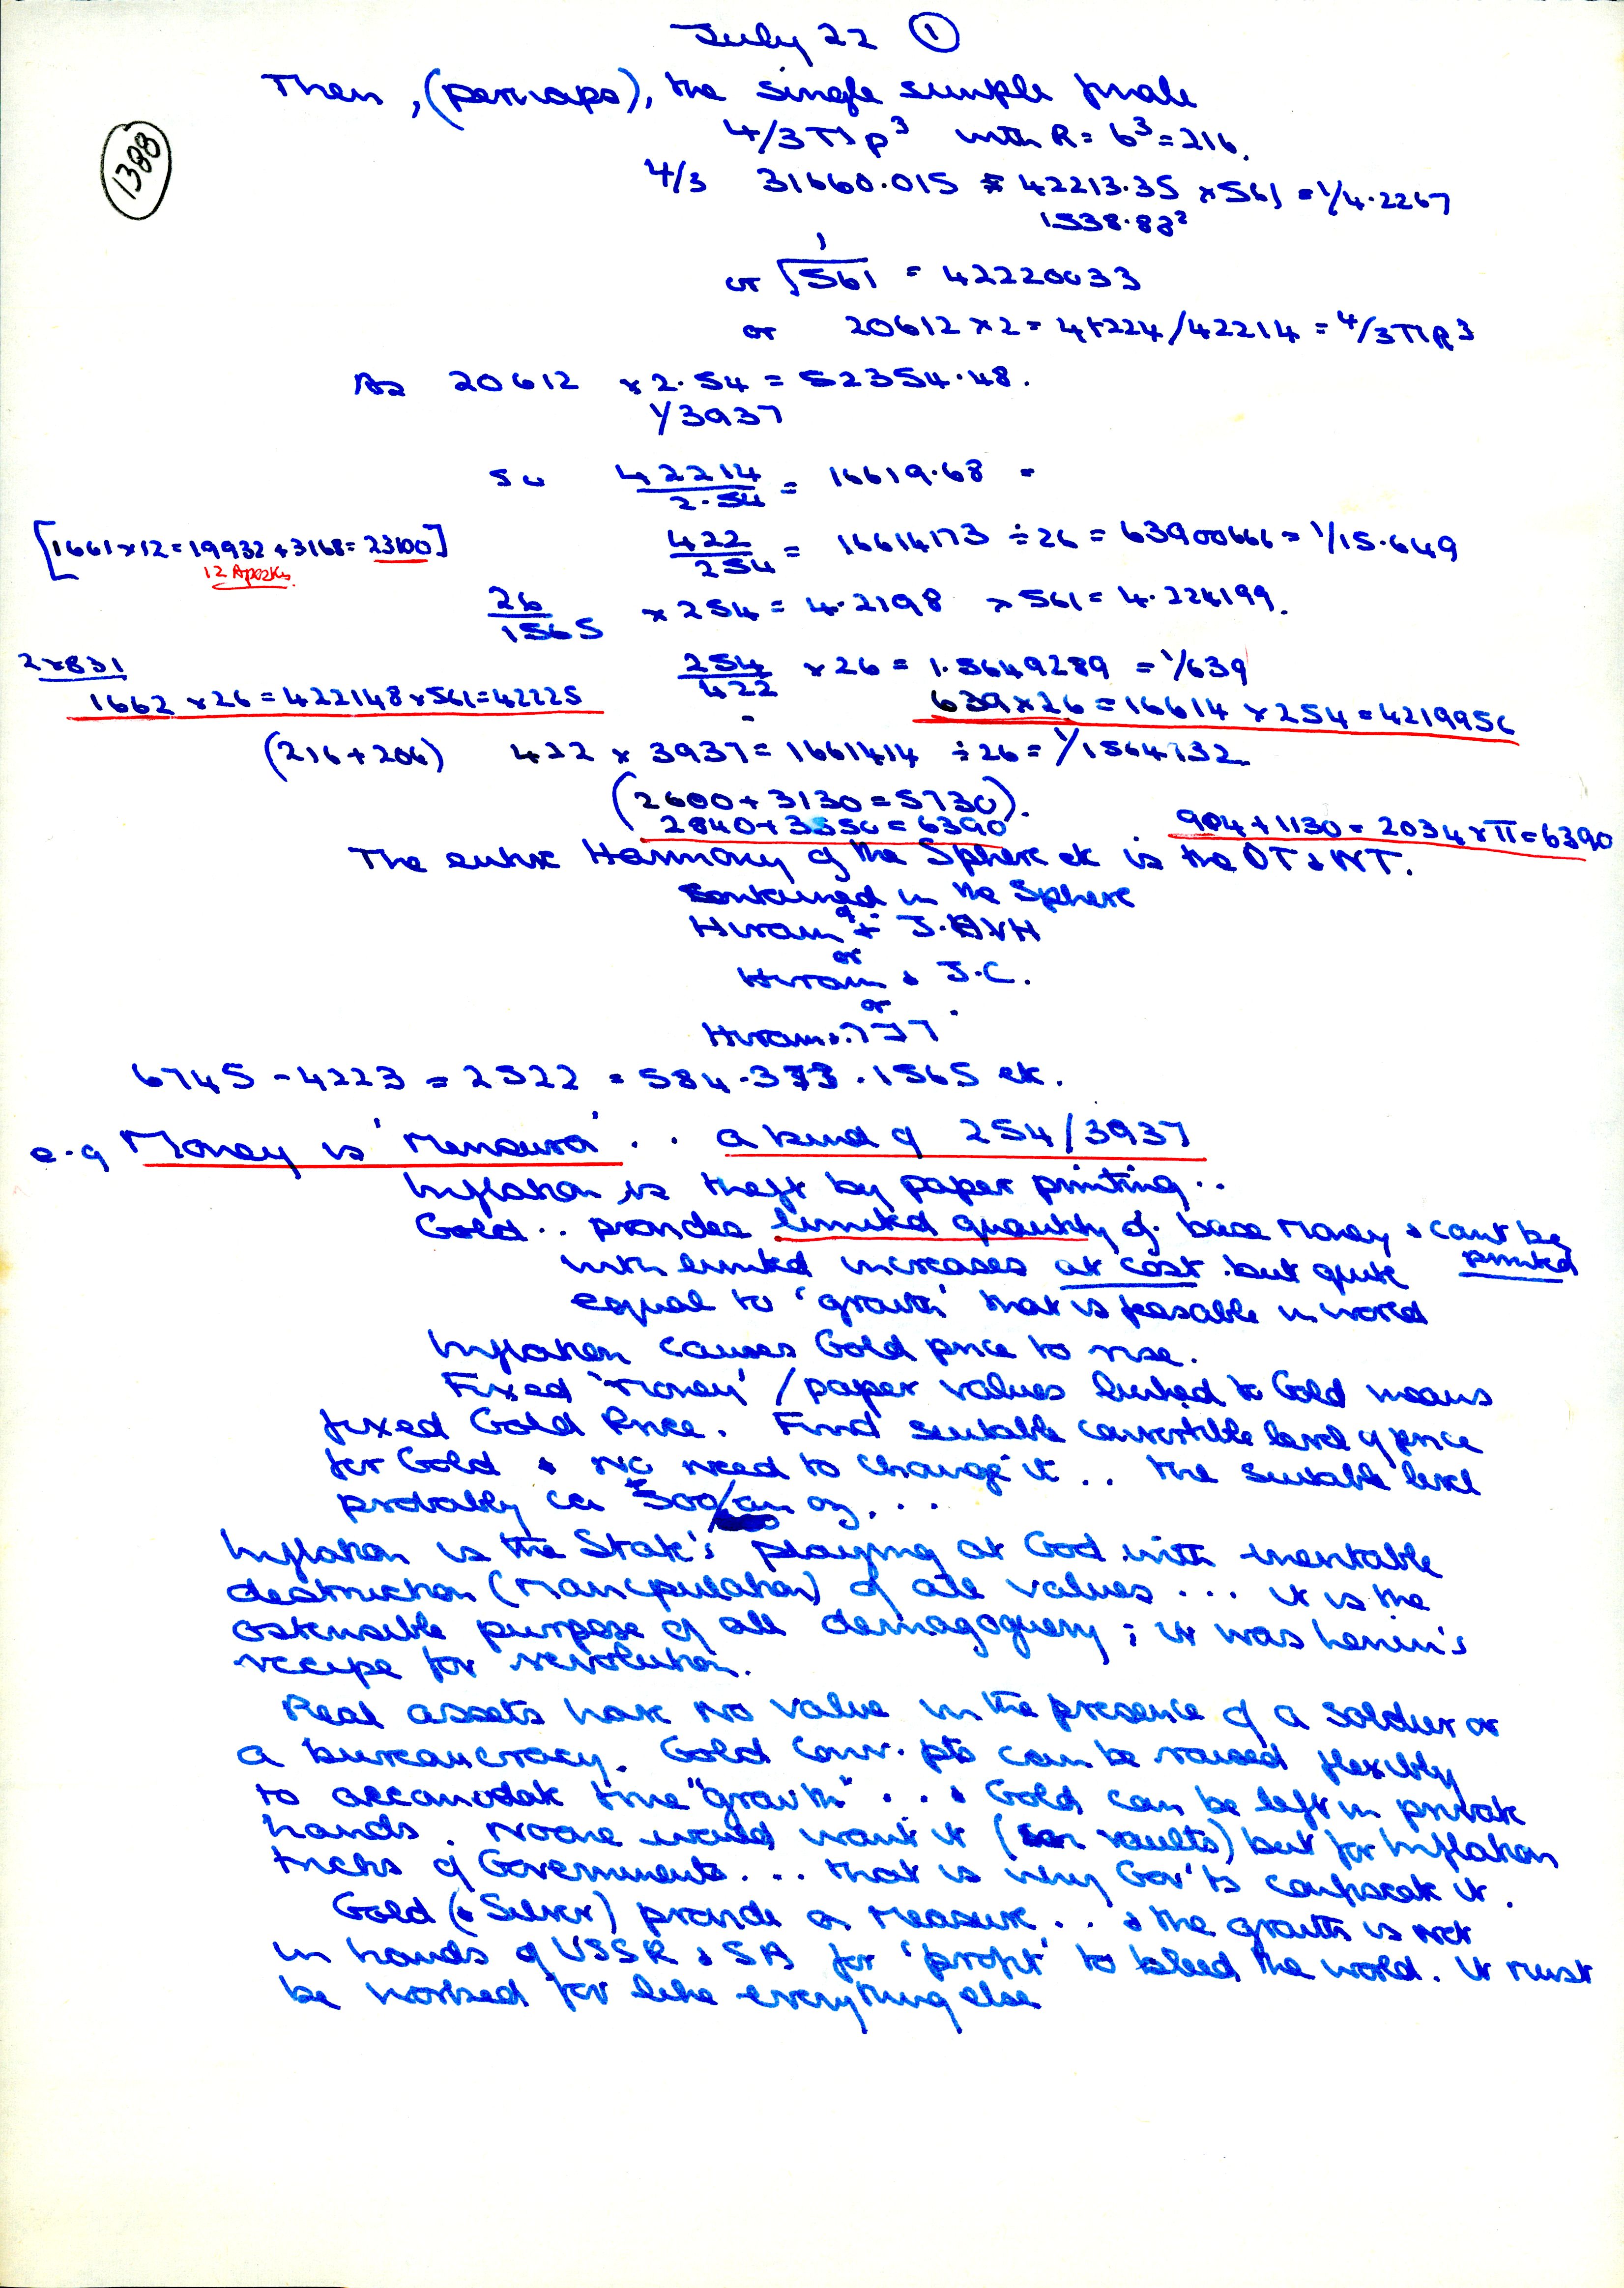 July 22 ①
1388
Then, (perhaps), the single simple finale
4/3 π p³ with R = 6³ = 216.
4/3 31660.015 = 42213.35 × 561 = 1/4.2267
1538.88²
or 1/√561 = 42220033
or 20612 × 2 = 41224/42214 = 4/3 π R³
As 20612 × 2.54 = 52354.48.
1/3937
So 42214/2.54 = 16619.68 =
[1661 × 12 = 19932 + 3168 = 23100]
12 Apostles
422/254 = 16614173 ÷ 26 = 63900666 = 1/15.649
26/1565 × 254 = 4.2198 × 561 = 4.224199.
2 × 831
254/422 × 26 = 1.5649289 = 1/639
1662 × 26 = 422148 × 561 = 42225
639 × 26 = 16614 × 254 = 4219956
(216 + 206) 422 × 3937 = 1661414 ÷ 26 = 1/1564932
(2600 + 3130 = 5730).
2840 + 3550 = 6390
904 + 1130 = 2034 × π = 6390
The entire Harmony of the Sphere etc is the OT & NT.
Contained in the Sphere
Hiram + J.HVH
or
Hiram & J.C.
or
Hiram & 737
6745 - 4223 = 2522 = 584.373.1565 etc.
e.g Money is 'Mensura' .. a kind of 254/3937
Inflation is theft by paper printing ..
Gold .. provides limited quantity of base money & can't be
printed
with limited increases at cost but quite
equal to 'growth' that is feasable in world
Inflation causes Gold price to rise.
Fixed 'money' / paper values linked to Gold means
fixed Gold Price. Find suitable convertible level of price
for Gold & no need to change it .. the suitable level
probably ca $500/an oz. ...
Inflation is the State's playing at God with inevitable
destruction (manipulation) of all values ... it is the
ostensible purpose of all demagoguery; it was Lenin's
recipe for revolution.
Real assets have no value in the presence of a soldier or
a bureaucracy. Gold conv. pts can be raised flexibly
to accomodate true "growth" ... & Gold can be left in private
hands. Noone would want it (in vaults) but for Inflation
tricks of Governments ... that is why Gov'ts confiscate it.
Gold (& Silver) provide a measure .. & the growth is not
in hands of USSR & SA for 'profit' to bleed the world. It must
be worked for like everything else